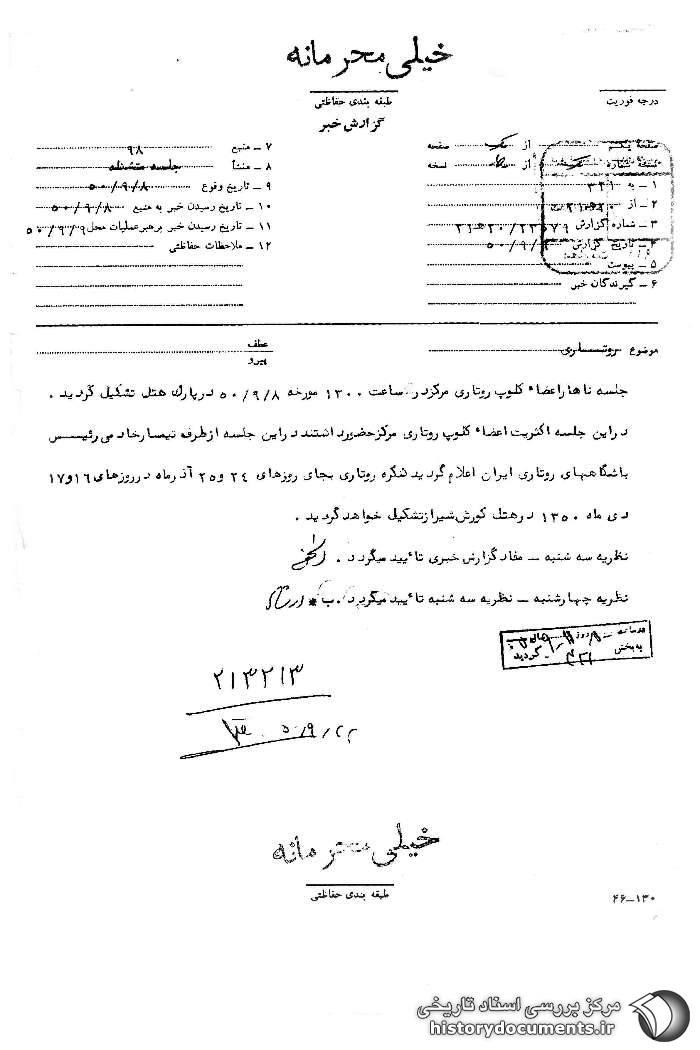 خیلی محرمانه
درجه فوریت
طبقه بندی حفاظتی
گزارش خبر
صفحه یکم از یک صفحه
نسخه شماره یک از نسخه
۱ ـ به ۳۲۱
۲ ـ از
۳ ـ شماره گزارش
۴ ـ تاریخ گزارش
۵ ـ پیوست
۶ ـ گیرندگان خبر
۷ ـ منبع ۹۸
۸ ـ منشأ جلسه متشکله
۹ ـ تاریخ وقوع ۵۰/۹/۸
۱۰ ـ تاریخ رسیدن خبر به منبع ۵۰/۹/۸
۱۱ ـ تاریخ رسیدن خبر برهبر عملیات محل ۵۰/۹/۹
۱۲ ـ ملاحظات حفاظتی
موضوع روتاری
عطف
پیرو
جلسه ناهار اعضاء کلوپ روتاری مرکز در ساعت ۱۳۰۰ مورخه ۵۰/۹/۸ در پارک هتل تشکیل گردید .
در این جلسه اکثریت اعضاء کلوپ روتاری مرکز حضور داشتند در این جلسه از طرف تیمسار خادمی رئیس
باشگاههای روتاری ایران اعلام گردید کنگره روتاری بجای روزهای ۲۴ و ۲۵ آذرماه در روزهای ۱۶ و ۱۷
دی ماه ۱۳۵۰ در هتل کورش شیراز تشکیل خواهد گردید .
نظریه سه شنبه ـ مفاد گزارش خبری تائید میگردد .
نظریه چهارشنبه ـ نظریه سه شنبه تائید میگردد .
به بخش ۳۲۱ گردید
۲۱۳۲۱۳
خیلی محرمانه
طبقه بندی حفاظتی
۴۶ـ۱۳۰
مرکز بررسی اسناد تاریخی
historydocuments.ir